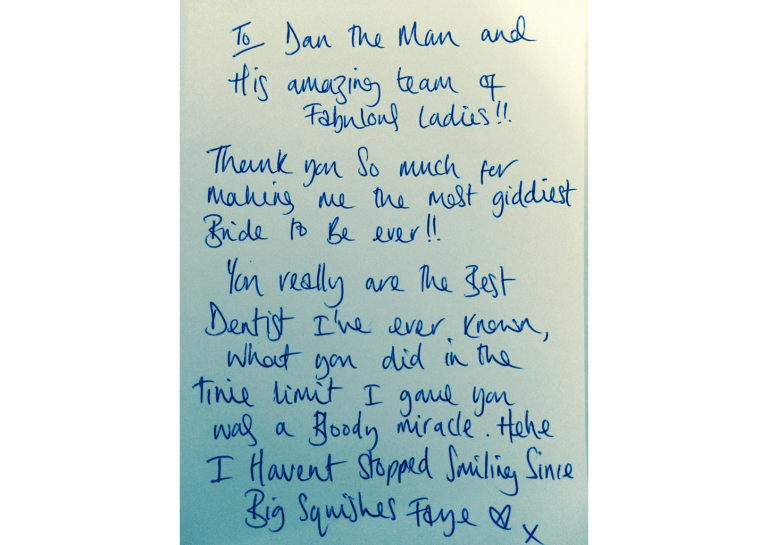 To Dan the Man and
His amazing team of
Fabulous Ladies!!
Thank you so much for
making me the most giddiest
Bride to Be ever!!
You really are the Best
Dentist I've ever known,
what you did in the
time limit I gave you
was a Bloody miracle. Hehe
I Havent Stopped Smiling Since
Big Squishes Faye
x